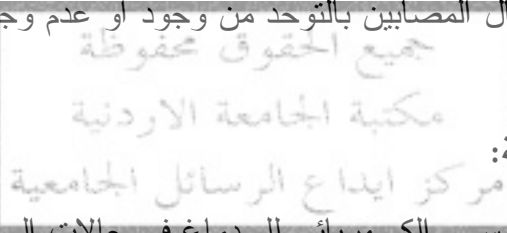 المصابين بالتوحد من وجود او عدم
جميع الحقوق محفوظة
مكتبة الجامعة الاردنية
مركز ايداع الرسائل الجامعية
للدماغ في حالات